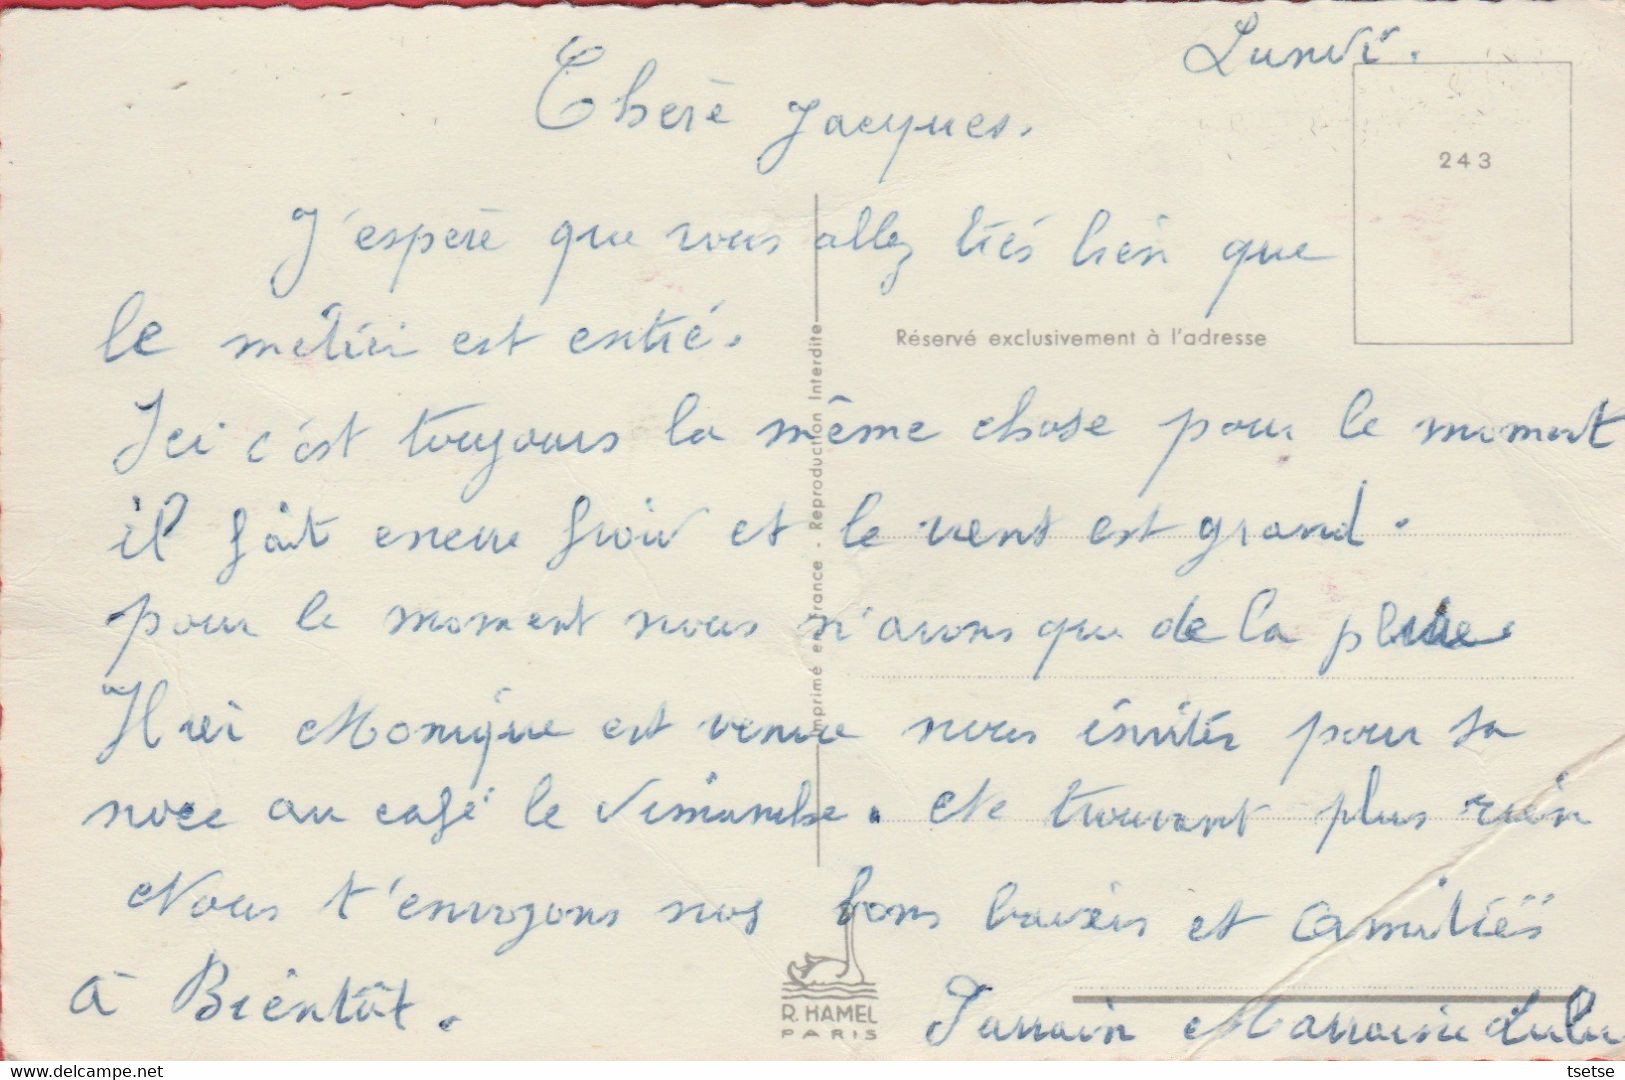 Lundi.
Cheré Jacques.
243
J'espère que vous allez très bien que
Réservé exclusivement à l'adresse
le métier est entré.
Ici c'est toujours la même chose pour le moment
il fait encore froid et le vent est grand.
pour le moment nous n'avons que de la pluie
Hier Monique est venue nous invités pour sa
noce au café le dimanche. Ne trouvant plus rien
Nous t'envoyons nos bons baisers et amitiés
à Bientôt.
Parrain Marraine Lulu
Imprimé en France - Reproduction Interdite
R. HAMEL
PARIS
delcampe.net
tsetse